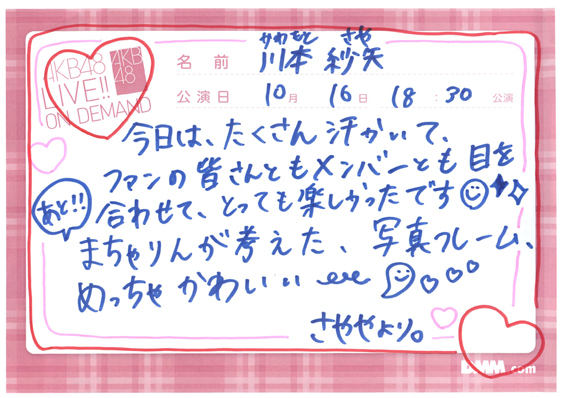 AKB48
LIVE!!
ON DEMAND
AKB
48
かわもと さや
名前 川本 紗矢
公演日 10月 16日 18:30 公演
今日は、たくさん汗かいて、
ファンの皆さんともメンバーとも目を
合わせて、とっても楽しかったです
あと!!
まちゃりんが考えた、写真フレーム、
めっちゃかわいい
さややより。
DMM.com